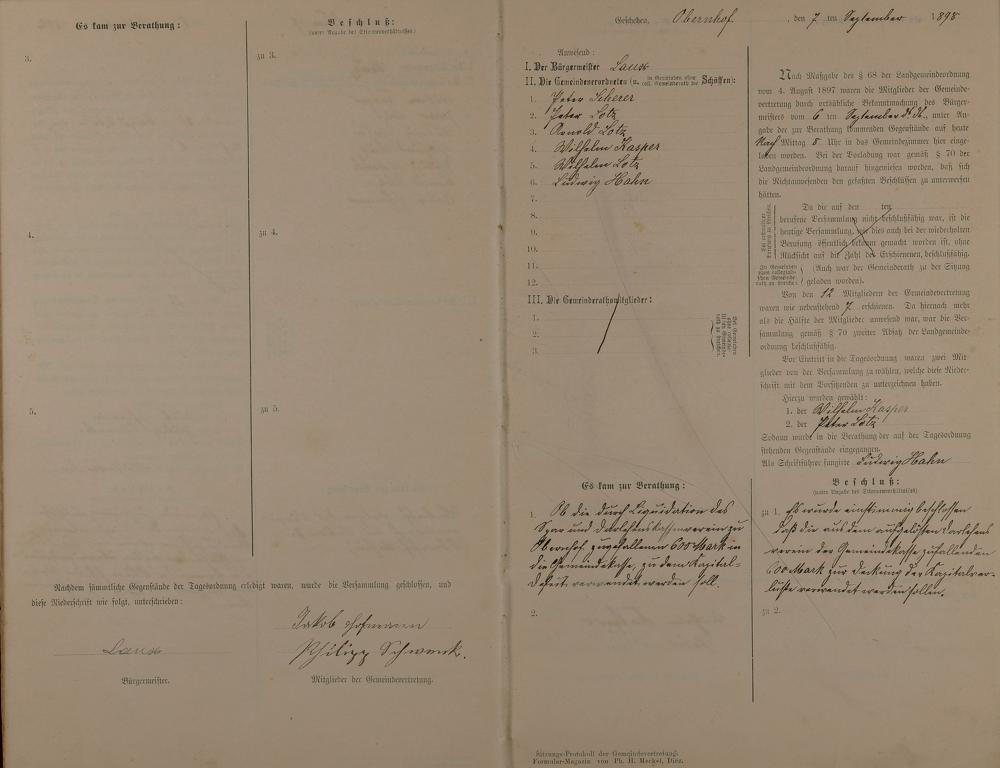 Es kam zur Berathung:
Beschluß:
(unter Angabe des Stimmenverhältnisses)
3.
zu 3.
4.
zu 4.
5.
zu 5.
Nachdem sämmtliche Gegenstände der Tagesordnung erledigt waren, wurde die Versammlung geschlossen, und
diese Niederschrift wie folgt, unterschrieben:
Jakob Hofmann
Philipp Schwenk.
Laux
Bürgermeister.
Mitglieder der Gemeindevertretung.
Geschehen, Obernhof, den 7 ten September 1898
Anwesend:
I. Der Bürgermeister Laux
II. Die Gemeindeverordneten (u. in Gemeinden ohne coll. Gemeinderath die Schöffen):
1. Peter Scherer
2. Peter Lotz
3. Arnold Lotz
4. Wilhelm Kasper
5. Wilhelm Lotz
6. Ludwig Hahn
7.
8.
9.
10.
11.
12.
III. Die Gemeinderathsmitglieder:
1.
2.
3.
Es kam zur Berathung:
1. Ob die durch Liquidation des
Spar und Darlehnskassenverein zu
Obernhof zugefallenen 600 Mark in
die Gemeindekasse, zu dem Kapital-
verwendet werden soll.
2.
Nach Maßgabe des § 68 der Landgemeindeordnung
vom 4. August 1897 waren die Mitglieder der Gemeinde-
vertretung durch ortsübliche Bekanntmachung des Bürger-
meisters vom 6 ten September d. Js., unter An-
gabe der zur Berathung kommenden Gegenstände auf heute
Nach Mittag 8 Uhr in das Gemeindezimmer hier einge-
laden worden. Bei der Vorladung war gemäß § 70 der
Landgemeindeordnung darauf hingewiesen worden, daß sich
die Nichtanwesenden den gefaßten Beschlüssen zu unterwerfen
hätten.
Da die auf den ten
berufene Versammlung nicht beschlußfähig war, ist die
heutige Versammlung, wie dies auch bei der wiederholten
Berufung öffentlich bekannt gemacht worden ist, ohne
Rücksicht auf die Zahl der Erschienenen, beschlußfähig.
(Auch war der Gemeinderath zu der Sitzung
geladen worden).
Von den 12 Mitgliedern der Gemeindevertretung
waren wie nebenstehend 7 erschienen. Da hiernach mehr
als die Hälfte der Mitglieder anwesend war, war die Ver-
sammlung gemäß § 70 zweiter Absatz der Landgemeinde-
ordnung beschlußfähig.
Vor Eintritt in die Tagesordnung waren zwei Mit-
glieder von der Versammlung zu wählen, welche diese Nieder-
schrift mit dem Vorsitzenden zu unterzeichnen haben.
Hierzu wurden gewählt:
1. der Wilhelm Kasper
2. der Peter Lotz
Sodann wurde in die Berathung der auf der Tagesordnung
stehenden Gegenstände eingegangen.
Als Schriftführer fungirte Ludwig Hahn
Beschluß:
(unter Angabe des Stimmenverhältnisses)
zu 1. Es wurde einstimmig beschlossen
daß die aus dem aufgelösten Darlehens
verein der Gemeindekasse zufallenden
600 Mark zur Deckung der Kapitalver-
luste verwendet werden sollen.
zu 2.
Sitzungs-Protokoll der Gemeindevertretung.
Formular-Magazin von Ph. H. Meckel, Diez.